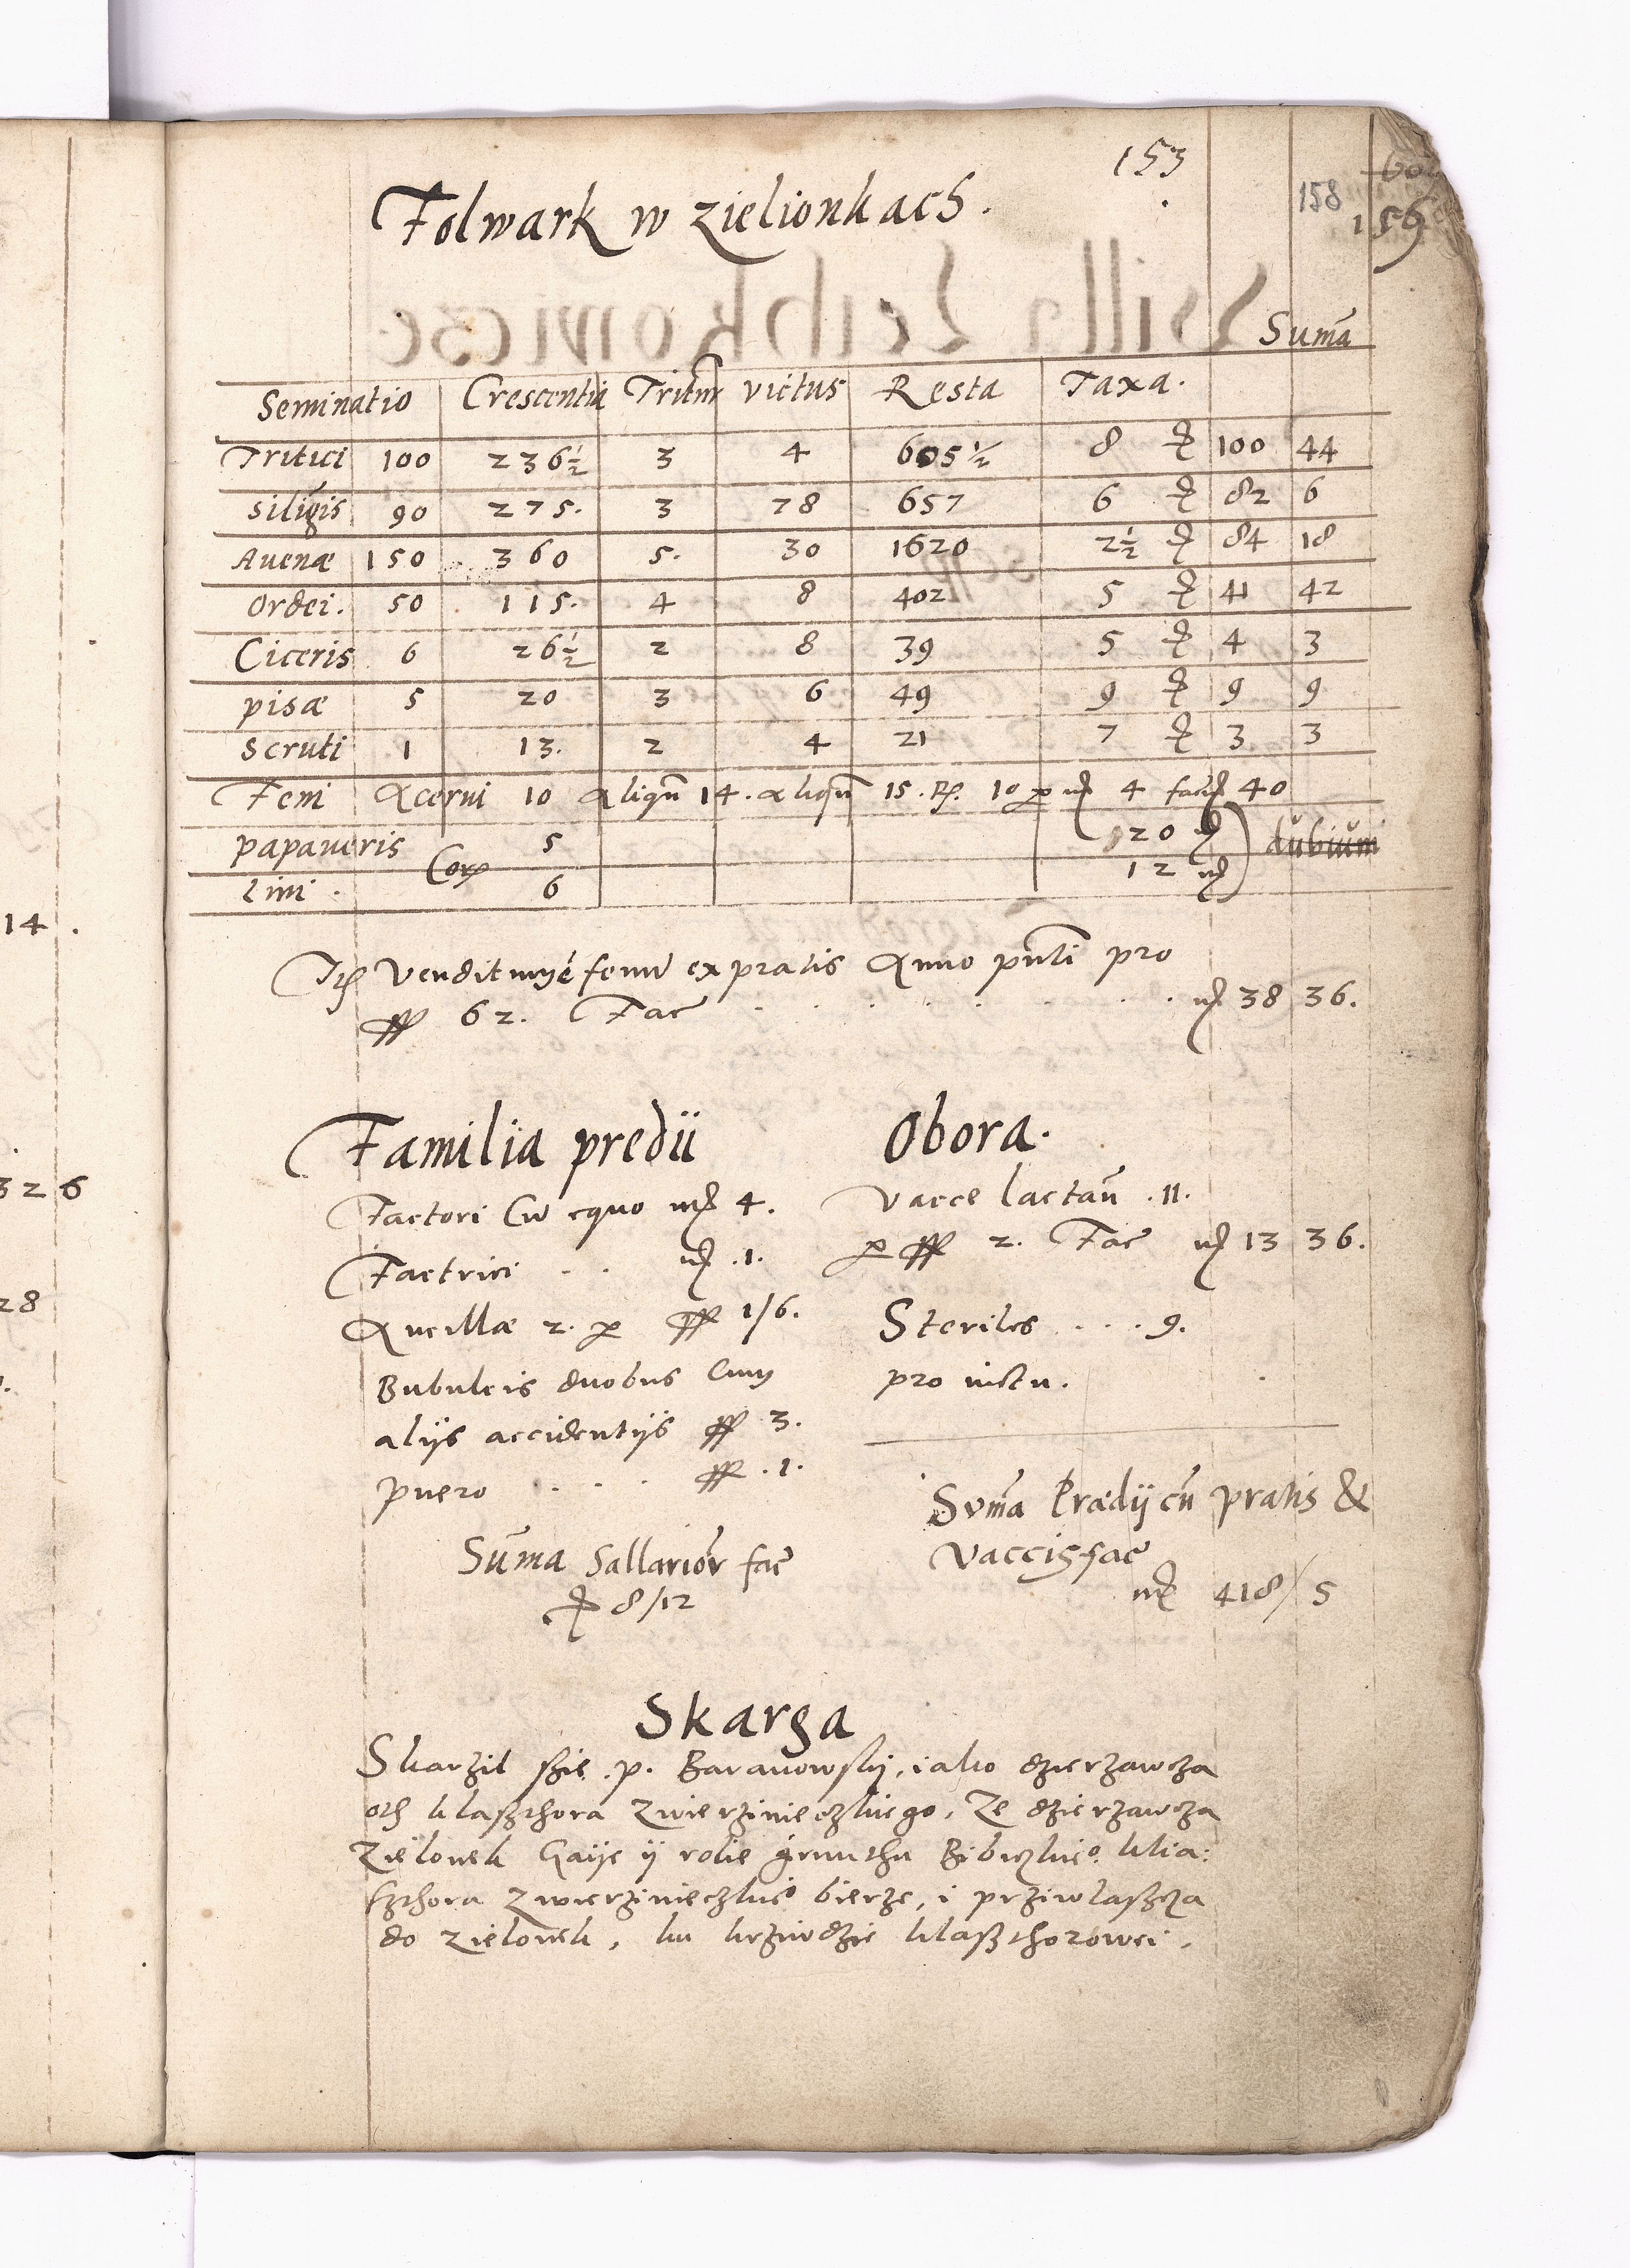 153
158
156
Folwark w zielionkach.
Sum̃a
Seminatio Crescentia Tritur victus Resta Taxa.
Tritici 100 236½ 3 4 605½ 8 100 44
siliginis 90 275. 3 78 657 6 82 6
Auenæ 150 360 5. 30 1620 2½ 84 18
Ordei. 50 115. 4 8 402 5 41 42
Ciceris 6 26½ 2 8 39 5 4 3
pisæ 5 20 3 6 49 9 9 9
Scruti 1 13. 2 4 21 7 3 3
Feni Acerui 10 aliqñ 14. aliqñ 15. 10 4 40
papaueris 5 20 dubium
Lini. 6 12
Vendit fenũ ex pratis Anno pñti pro
62. Fac 38 36.
Familia predii
Factori Cũ equo 4.
Factrici . . 1.
Ancillæ 2. 1/6.
Bubulcis duobus Cum
alijs accidentijs 3.
puero . . . 1.
Sum̃a Sallariorr fac
8/12
Obora.
Vacce lactañ .11.
2. Fac 13 36.
Steriles . . . 9.
pro victu.
Sum̃a Prædij cũ pratis &
vaccis fac
418/5
Skarga
Skarżil szie .p. Baranowskj, iako dzierzawcza
oth klaszthora Zwierzinieczkiego, Ze dzierzawcza
Zielonek Gaije ij rolie grunthu Bibiczkieo klia:
szthora Zwierzinieczkieo bierze, i prziwlascza
do zielonek, ku krziwdzie klaszthorowei.